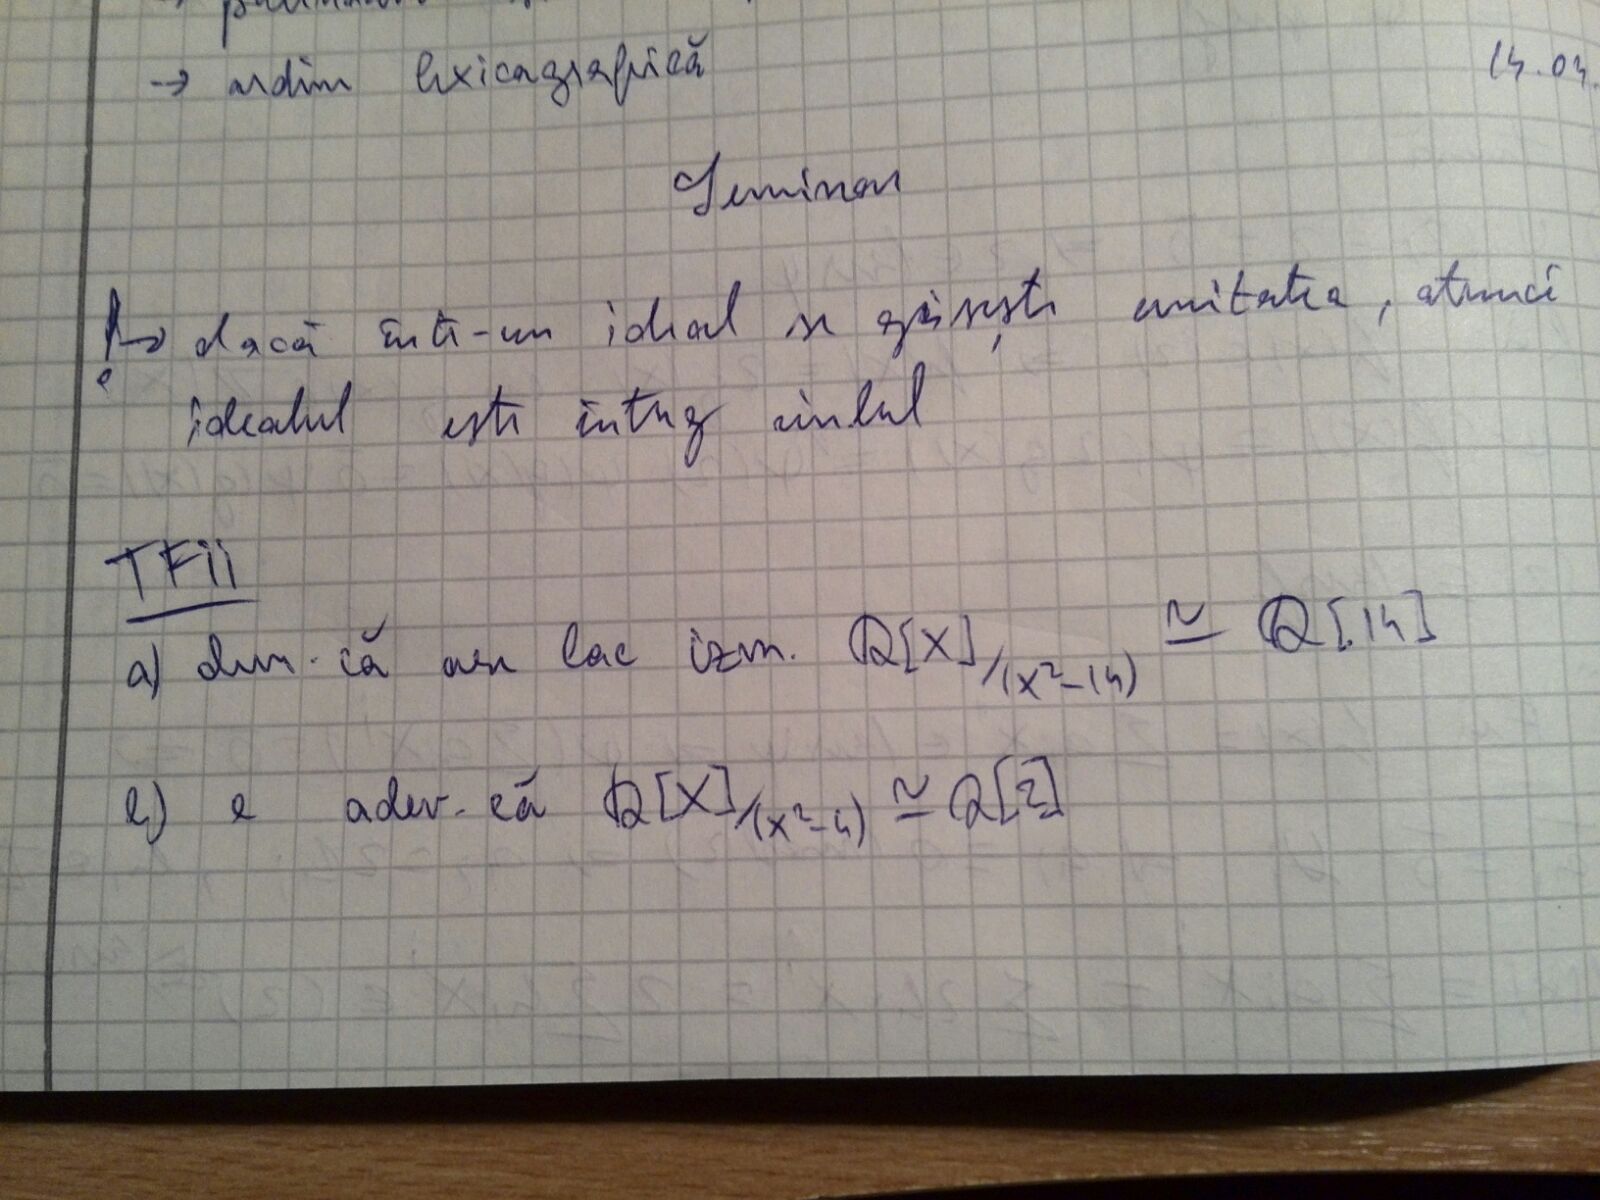 → ordin lexicografică
14.04.
Seminar
!→ dacă într-un ideal se găsește unitatea, atunci
idealul este întreg inelul
TFII
a) dem. că are loc izm. Q[X]/(x²-14) ≃ Q[14]
b) e adev. că Q[X]/(x²-4) ≃ Q[2]